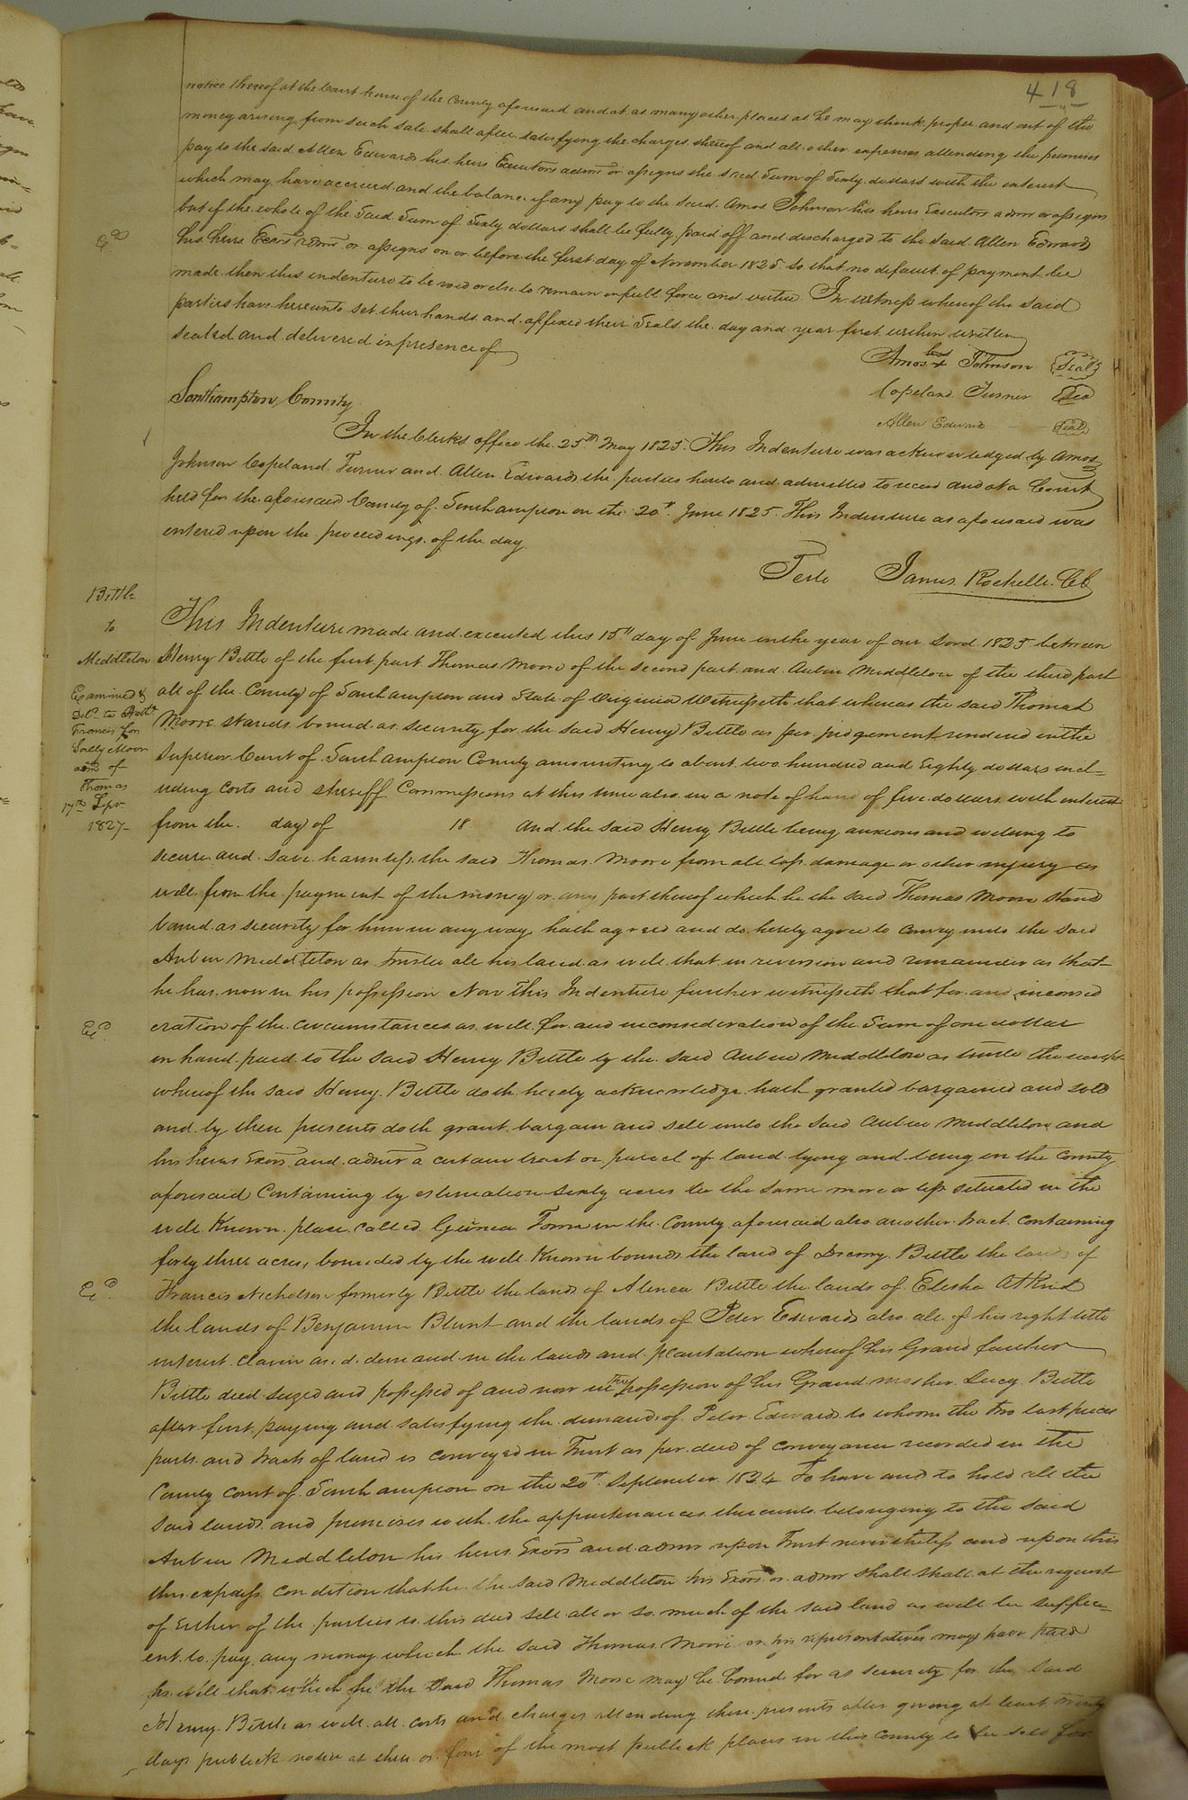 418
notice thereof at the Court house of the County aforesaid and at as many other places as he may think proper and out of the
money arising from such sale shall after satisfying the charges thereof and all other expences attending the premises
pay to the said Allen Edwards his heirs Executors admrs or assigns the said Sum of Sixty dollars with the interest
which may have accrued and the balance if any pay to the said Amos Johnson his heirs Executors admrs or assigns
but if the whole of the said Sum of Sixty dollars shall be fully paid off and discharged to the said Allen Edwards
his heirs Exors admrs or assigns on or before the first day of November 1825 so that no default of payment be
made then this indenture to be void or else to remain in full force and virtue In witness whereof the said
parties have hereunto set their hands and affixed their Seals the day and year first within written
sealed and delivered in presence of
Amos + Johnson Seal
Copeland Turner Seal
Allen Edwards Seal
Southampton County
In the Clerks office the 25th May 1825. This Indenture was acknowledged by Amos
Johnson Copeland Turner and Allen Edwards the parties hereto and admitted to record and at a Court
held for the aforesaid County of Southampton on the 20th June 1825. This Indenture as aforesaid was
entered upon the proceedings of the day
Teste James Rochelle CC
Bittle
to
Meddleton
Examined &
Francis for
Sally Moore
adx of
Thomas
17th Apr
1827
This Indenture made and executed this 15th day of June in the year of our Lord 1825 between
Henry Bittle of the first part Thomas Moore of the second part and Auben Middleton of the third part
all of the County of Southampton and State of Virginia Witnesseth that whereas the said Thomas
Moore stands bound as security for the said Henry Bittle as per judgement rendered in the
Superior Court of Southampton County amounting to about two hundred and Eighty dollars incl=
uding costs and sheriff Commissions at this time also in a note of hand of five dollars with interest
from the day of 18 And the said Henry Bittle being anxious and willing to
secure and save harmless the said Thomas Moore from all loss damage or other injury as
well from the payment of the money or any part thereof which he the said Thomas Moore stand
bound as security for him in any way hath agreed and do hereby agree to convey unto the said
Auben Meddleton as trustee all his land as well that in reversion and remainder as that
he has now in his possession Now This Indenture further witnesseth that for and inconsid
eration of the circumstances as well for and inconsideration of the Sum of one dollar
in hand paid to the said Henry Bittle by the said Auben Middleton as trustee the receipt
whereof the said Henry Bittle doth hereby acknowledge hath granted bargained and sold
and by these presents doth grant bargain and sell unto the said Auben Middleton and
his heirs Exors and admrs a certain tract or parcel of land lying and being in the County
aforesaid Containing by estimation sixty acres be the same more or less situated in the
well Known place called Guinea Town in the County aforesaid also another tract containing
forty three acres, bounded by the well Known bounds the land of Drewry Bittle the lands of
Francis Nicholson formerly Bittle the lands of Bittle the lands of Elisha Atkins
the lands of Benjamin Blunt and the lands of Peter Edwards also all of his right title
interest claim and demand in the lands and plantation whereof his Grand father
Bittle died seized and possessed of and now in the possession of his Grand mother Lucy Bittle
after first paying and satisfying the demands of Peter Edwards to whom the two last pieces
parts and tracts of land is conveyed in Trust as per deed of conveyance recorded in the
County Court of Southampton on the 20th September 1824 To have and to hold all the
said lands and premises with the appurtenances thereunto belonging to the said
Auben Meddleton his heirs Exors and admrs upon Trust nevertheless and upon this
this express condition that he the said Meddleton his Exors or admr shall shall at the request
of either of the parties to this deed sell all or so much of the said land as will be suffici=
ent to pay any money which the said Thomas Moore or his representatives may have paid
as well that which he the said Thomas Moore may be bound for as security for the said
Henry Bittle as well all costs and charges attending these presents after giving at least twenty
days publick notice at three or four of the most publick places in this County to be sold for